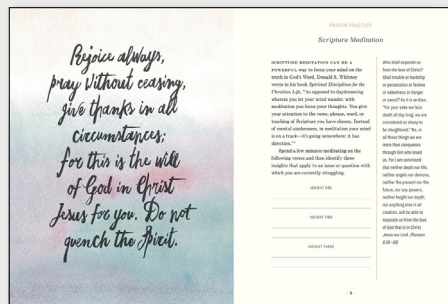 Rejoice always,
pray without ceasing,
give thanks in all
circumstances;
for this is the will
of God in Christ
Jesus for you. Do not
quench the Spirit.
PRAYER PRACTICE
Scripture Meditation
SCRIPTURE MEDITATION CAN BE A
POWERFUL way to focus your mind on the
truth in God's Word. Donald S. Whitney
wrote in his book Spiritual Disciplines for the
Christian Life, "As opposed to daydreaming
wherein you let your mind wander, with
meditation you focus your thoughts. You give
your attention to the verse, phrase, word, or
teaching of Scripture you have chosen. Instead
of mental aimlessness, in meditation your mind
is on a track—it's going somewhere; it has
direction."
Spend a few minutes meditating on the
following verses and then identify three
insights that apply to an issue or question with
which you are currently struggling.
INSIGHT ONE
INSIGHT TWO
INSIGHT THREE
Who shall separate us
from the love of Christ?
Shall trouble or hardship
or persecution or famine
or nakedness or danger
or sword? As it is written:
"For your sake we face
death all day long; we are
considered as sheep to
be slaughtered." No, in
all these things we are
more than conquerors
through him who loved
us. For I am convinced
that neither death nor life,
neither angels nor demons,
neither the present nor the
future, nor any powers,
neither height nor depth,
nor anything else in all
creation, will be able to
separate us from the love
of God that is in Christ
Jesus our Lord. (Romans